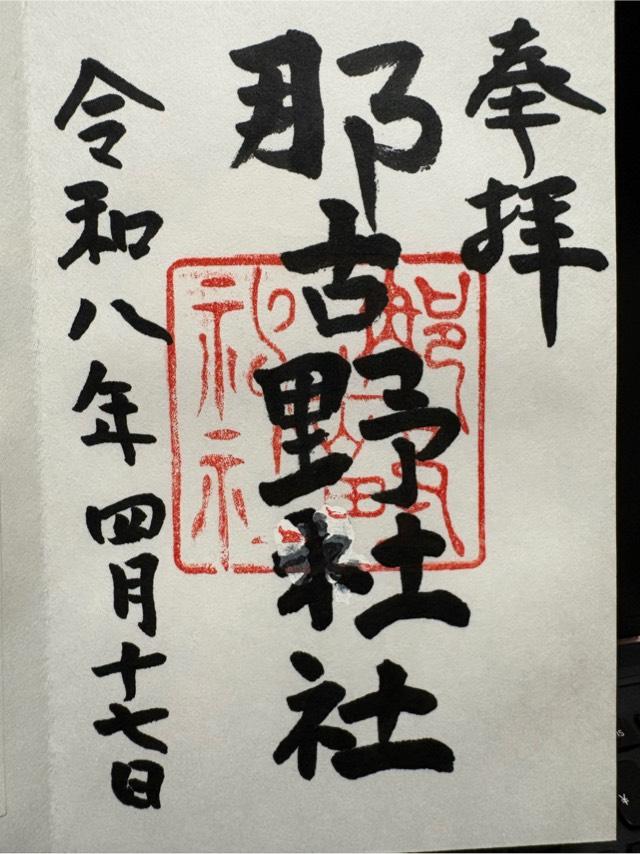 奉拝
那古野社
令和八年四月十七日